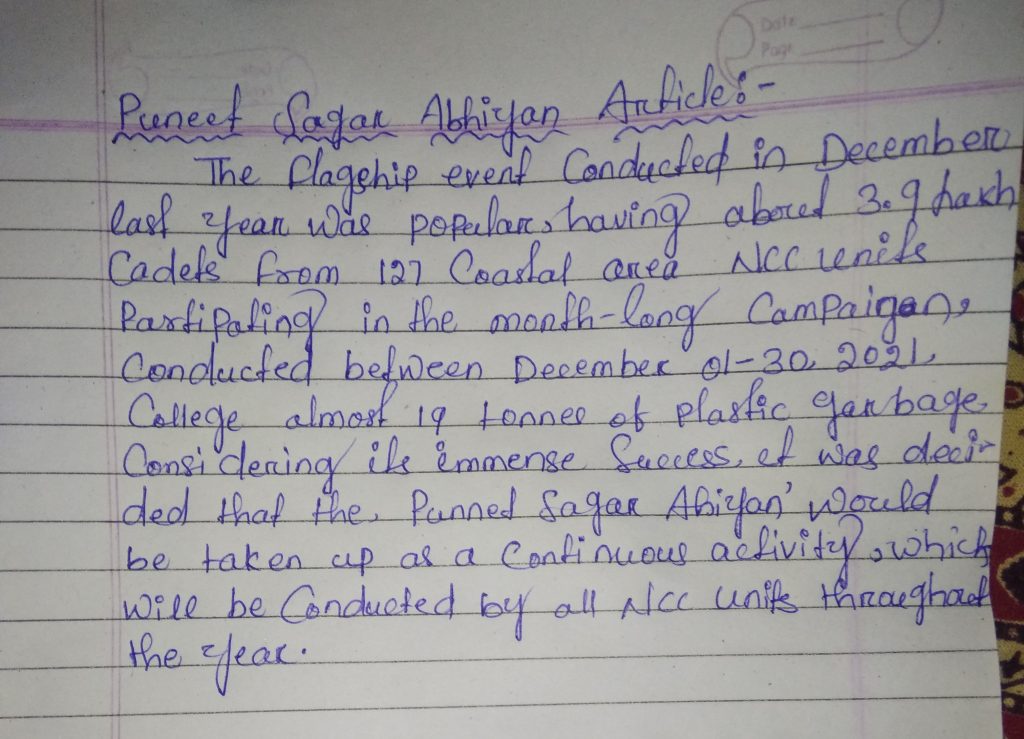 Date
Page
Puneet Sagar Abhiyan Article:-
The flagship event Conducted in December
last year was popular, having about 3.9 hakh
Cadets from 127 Coastal area NCC units
Partipating in the month-long Campaigan,
Conducted between December 01-30, 2021,
College almost 19 tonnes of plastic garbage,
Considering its immense Success, it was deci-
ded that the, Punned Sagar Abiyan' would
be taken up as a Continuous activity, which
will be Conducted by all NCC units throughout
the year.